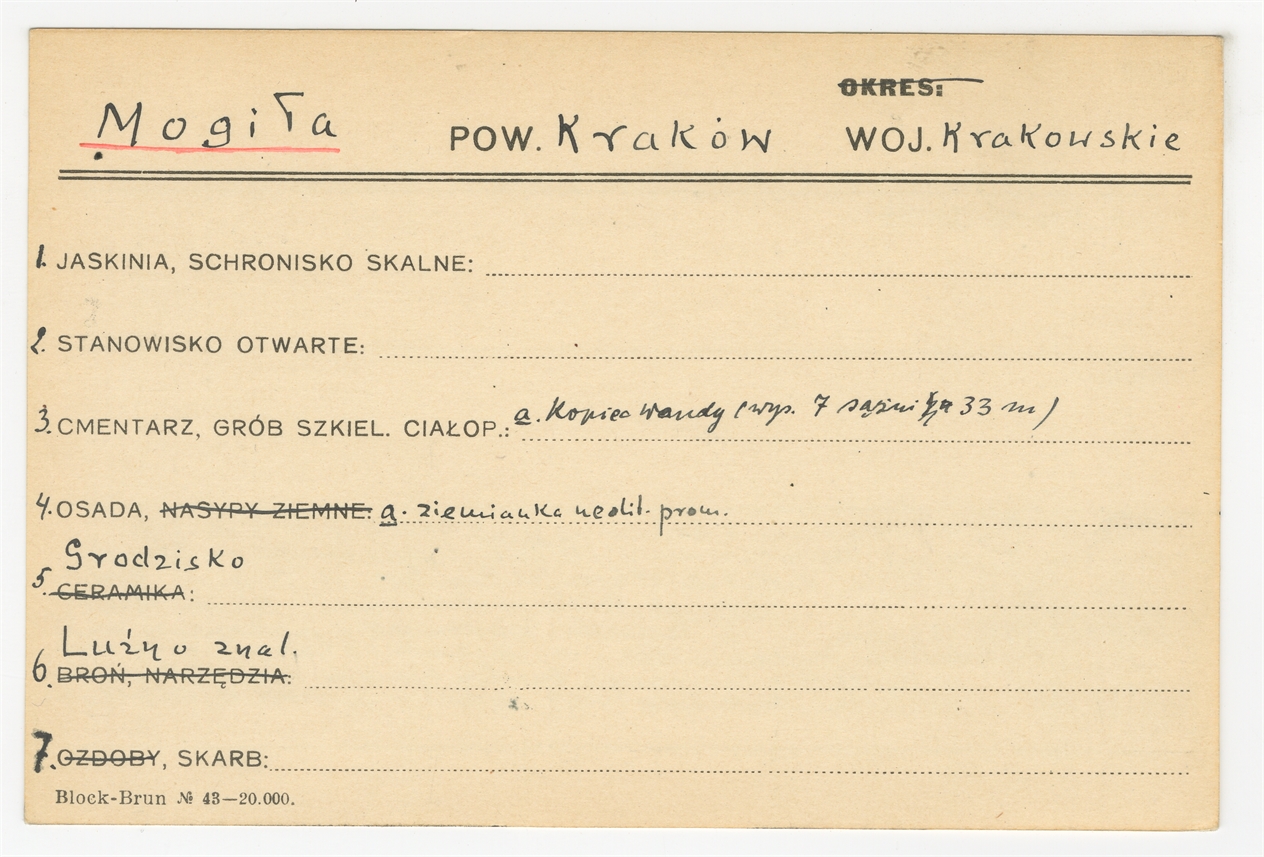 OKRES:
Mogiła POW. Kraków WOJ. Krakowskie
1. JASKINIA, SCHRONISKO SKALNE:
2. STANOWISKO OTWARTE:
a. Kopiec Wandy (wys. 7 sążni 33 m)
3. CMENTARZ, GRÓB SZKIEL. CIAŁOP.:
4. OSADA, NASYPY ZIEMNE: a. ziemianka neolit. prom.
Grodzisko
5. CERAMIKA:
Luźno znal.
6. BROŃ, NARZĘDZIA:
7. OZDOBY, SKARB:
Block-Brun № 43—20.000.